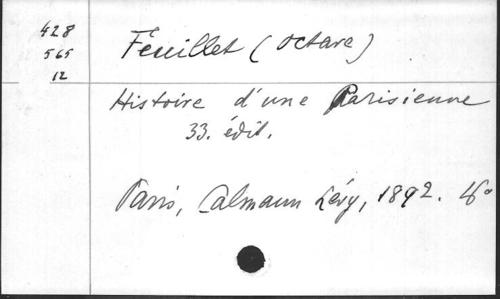 428
565
12
Feuillet (Octave)
Histoire d'une Parisienne
33. édit.
Paris, Calmann Lévy, 1892.